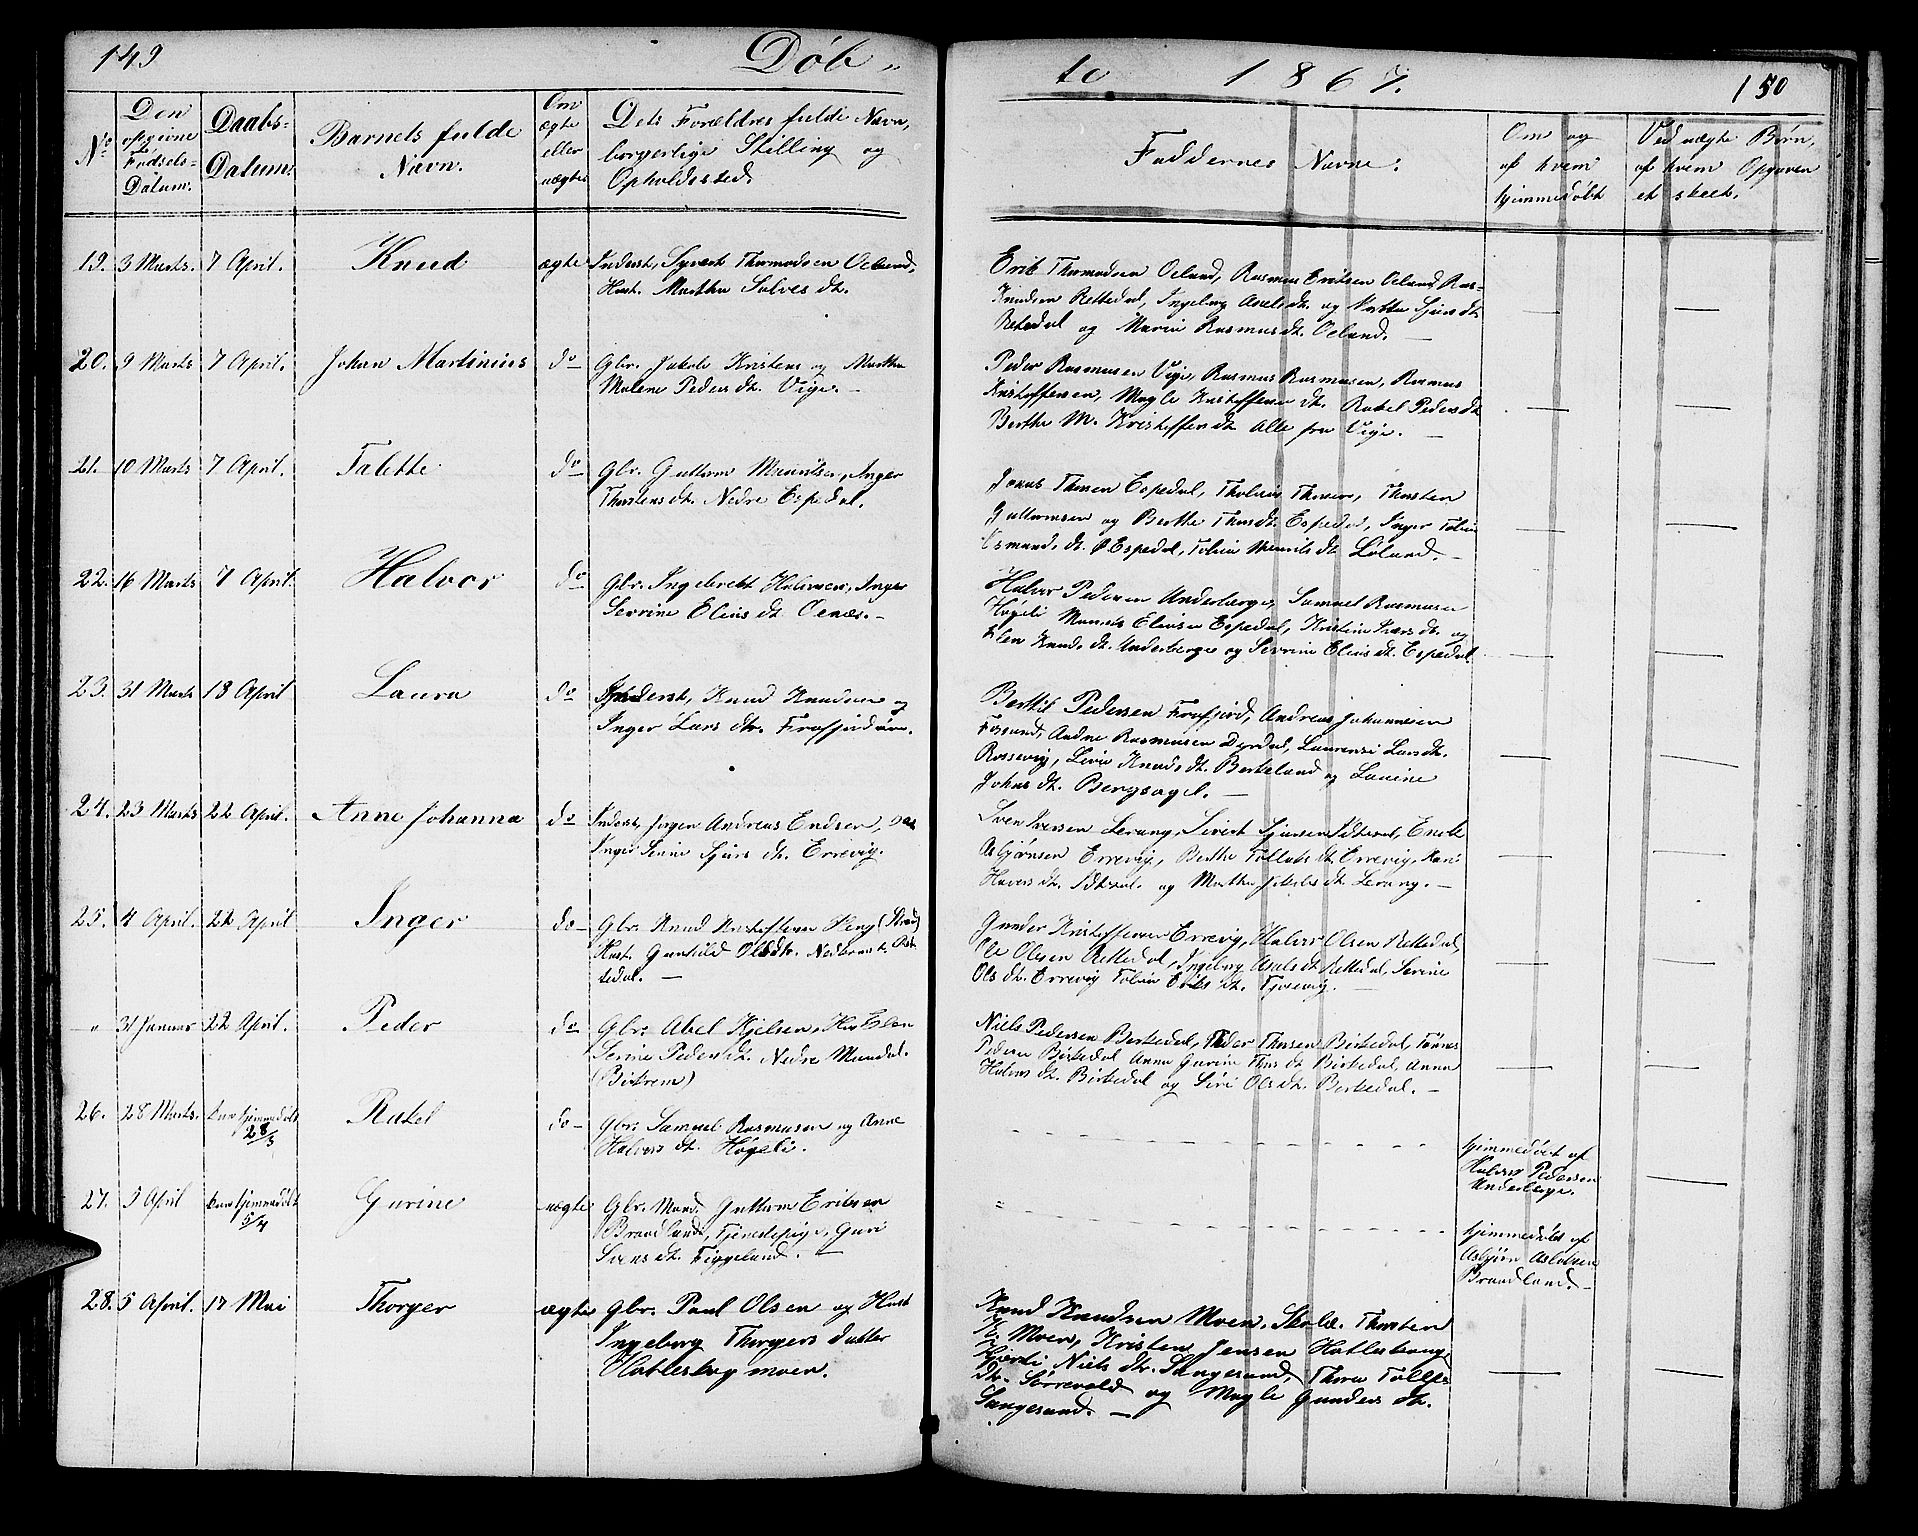 149
Døb-
te 1867.
150
No
Den opgivne Fødsels-Datum.
Daabs-Datum.
Barnets fulde Navn.
Om ægte eller uægte
Dets Forældres fulde Navn, borgerlige Stilling og Opholdssted.
Faddernes Navne.
Om og af hvem hjemmedøbt
Ved uægte Børn, af hvem Opgaven er skeet.
19. 3 Marts. 7 April. Knud ægte Inderst, Syvert Thormodsen Oeland,
Hust. Martha Salves dt.
Erik Thormodsen Oeland, Rasmus Eriksen Oeland, Ras-
Knudsen Rettedal, Ingeborg Axels dt. og
og Maren Rasmus dt. Oeland. —
20. 9 Marts 7 April. Johan Martinius do Gbr. Jakob Kristens og Martha
Malene Peders dt. Vige. —
Peder Rasmusen Vige, Rasmus Rasmusen, Rasmus
Kristoffersen, Magle Kristoffersen dt. Rakel Peders dt.
Berthe M. Kristoffer dt. Alle fra Vige. —
21. 10 Marts 7 April. Talette do Gbr. Guttorm Mauritsen, Inger
Thorstens dt. Nedre Espedal.
Jonas Thosen Espedal, Thosen, Thorsten
Guttormsen og Berthe Thors dt. Espedal, Inger
dt. Espedal, Løland. —
22. 16 Marts 7 April. Halvor do Gbr. Ingebrekt Halvorsen, Inger
Sevrine Elius dt. Oenæs. —
Halvor Pedersen Underberge, Samuel Rasmusen
Høgeli Eliasen Espedal, Kristine dt. og
Elen Knuds dt. Underberge og Sevrine Elius dt. Espedal.
23. 31 Marts 18 April Laura do Inderst, Knud Knudsen og
Inger Lars dtr. Frafjordøren.
Berthil Pedersen Frafjord, Andreas Johannesen
Fossand, Andne Rasmusen Dyrdal, Laurense Lars dt.
Rossevig, Sivie Knuds dt. Birkeland og Lauine
Johns dt. Bergsagel. —
24. 23 Marts 22 April. Anne Johanna do Inderst, Jørgen Andreas Endsen,
Inger Serine Sjurs dt. Errevig.
Sven Iversen Levang, Sivert Sjursen Idsedal, Enok
Asbjørnsen Errevig, Berthe Tollaks dt. Errevig,
Havors dt. Idsedal. og Martha Jakobs dt. Levang. —
25. 4 April. 22 April Inger do — Gbr. Knud Kristoffersen Heng (Strand)
Hust. Gunhild Olsdtr. Nedrematk Ret-
tedal. —
Gunder Kristoffersen Errevig, Halvor Olsen Rettedal,
Ole Olsen Rettedal, Ingeborg Axels dt. Rettedal, Serine
Ols dt. Errevig Eriks dt. Fjosevig. —
— " 31 Januar 22 April. Peder do Gbr. Abel Kjelsen, Hus. Elen
Serine Peders dt. Nedre Mundal.
(Birkrem)
Niels Pedersen Berkedal, Peder Thosen Birkedal, Tønnes
Pedersen Birkedal Anna Gurine Thos dt Birkedal, Anna
Halvors dt. Birkedal og Siri Ols dt. Berkedal. —
26. 28 Marts. hjemmedøbt
28/3
Rakel do — Gbr. Samuel Rasmusen og Anne
Halvors dt. Høgeli.
hjemmedøbt af
Halvor Pedersen
Underberge.
27. 5 April hjemmedøbt
5/4
Gurine uægte Gbr. Mand, Guttorm Eriksen
Braadland, Tjenestepige, Guri
Svens dt. Figgeland. —
hjemmedøbt af
Asbjørn Aslaksen
Braadland. —
28. 5 April. 17 Mai Thorger ægte Gbr. Paul Olsen og Hust
Ingeborg Thorgers datter
Hatleskog moen.
Knud Knudsen Moen. Skole. Thorsten
K. Moen, Kristen Jensen Hatleskog,
Niels dt. Sangesand, Thora Tollefs
dt. Sørrevold og Magle Gunders dt.
Sangesand. —